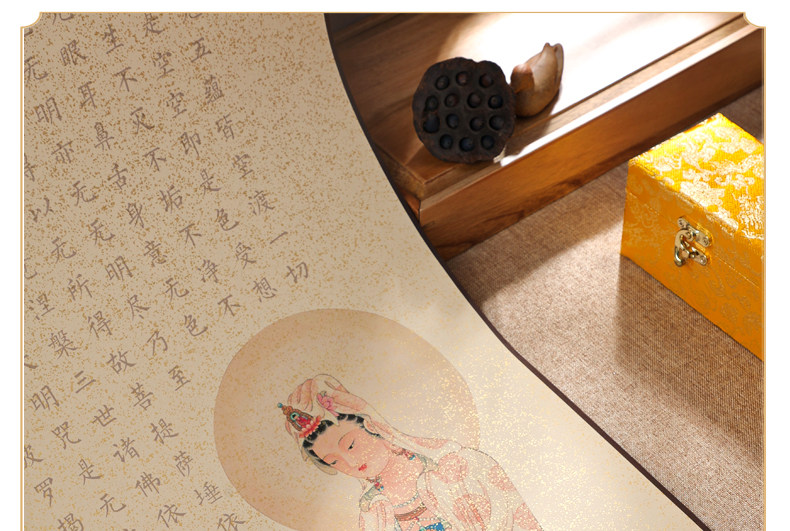 五蘊皆空渡一切
是空空即是色受想
生不灭不垢不净不
无眼耳鼻舌身意无色
无明亦无无明尽乃至
以无所得故菩提萨埵依
涅槃三世诸佛依
明咒是无
罗揭